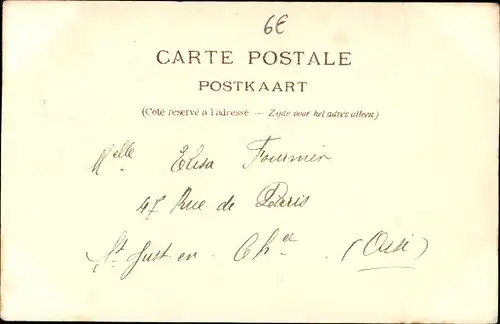 6€
CARTE POSTALE
POSTKAART
(Côté réservé à l'adresse — Zijde voor het adres alleen)
Melle Elisa Fournier
47 Rue de Paris
St Just en Chée (Oise)